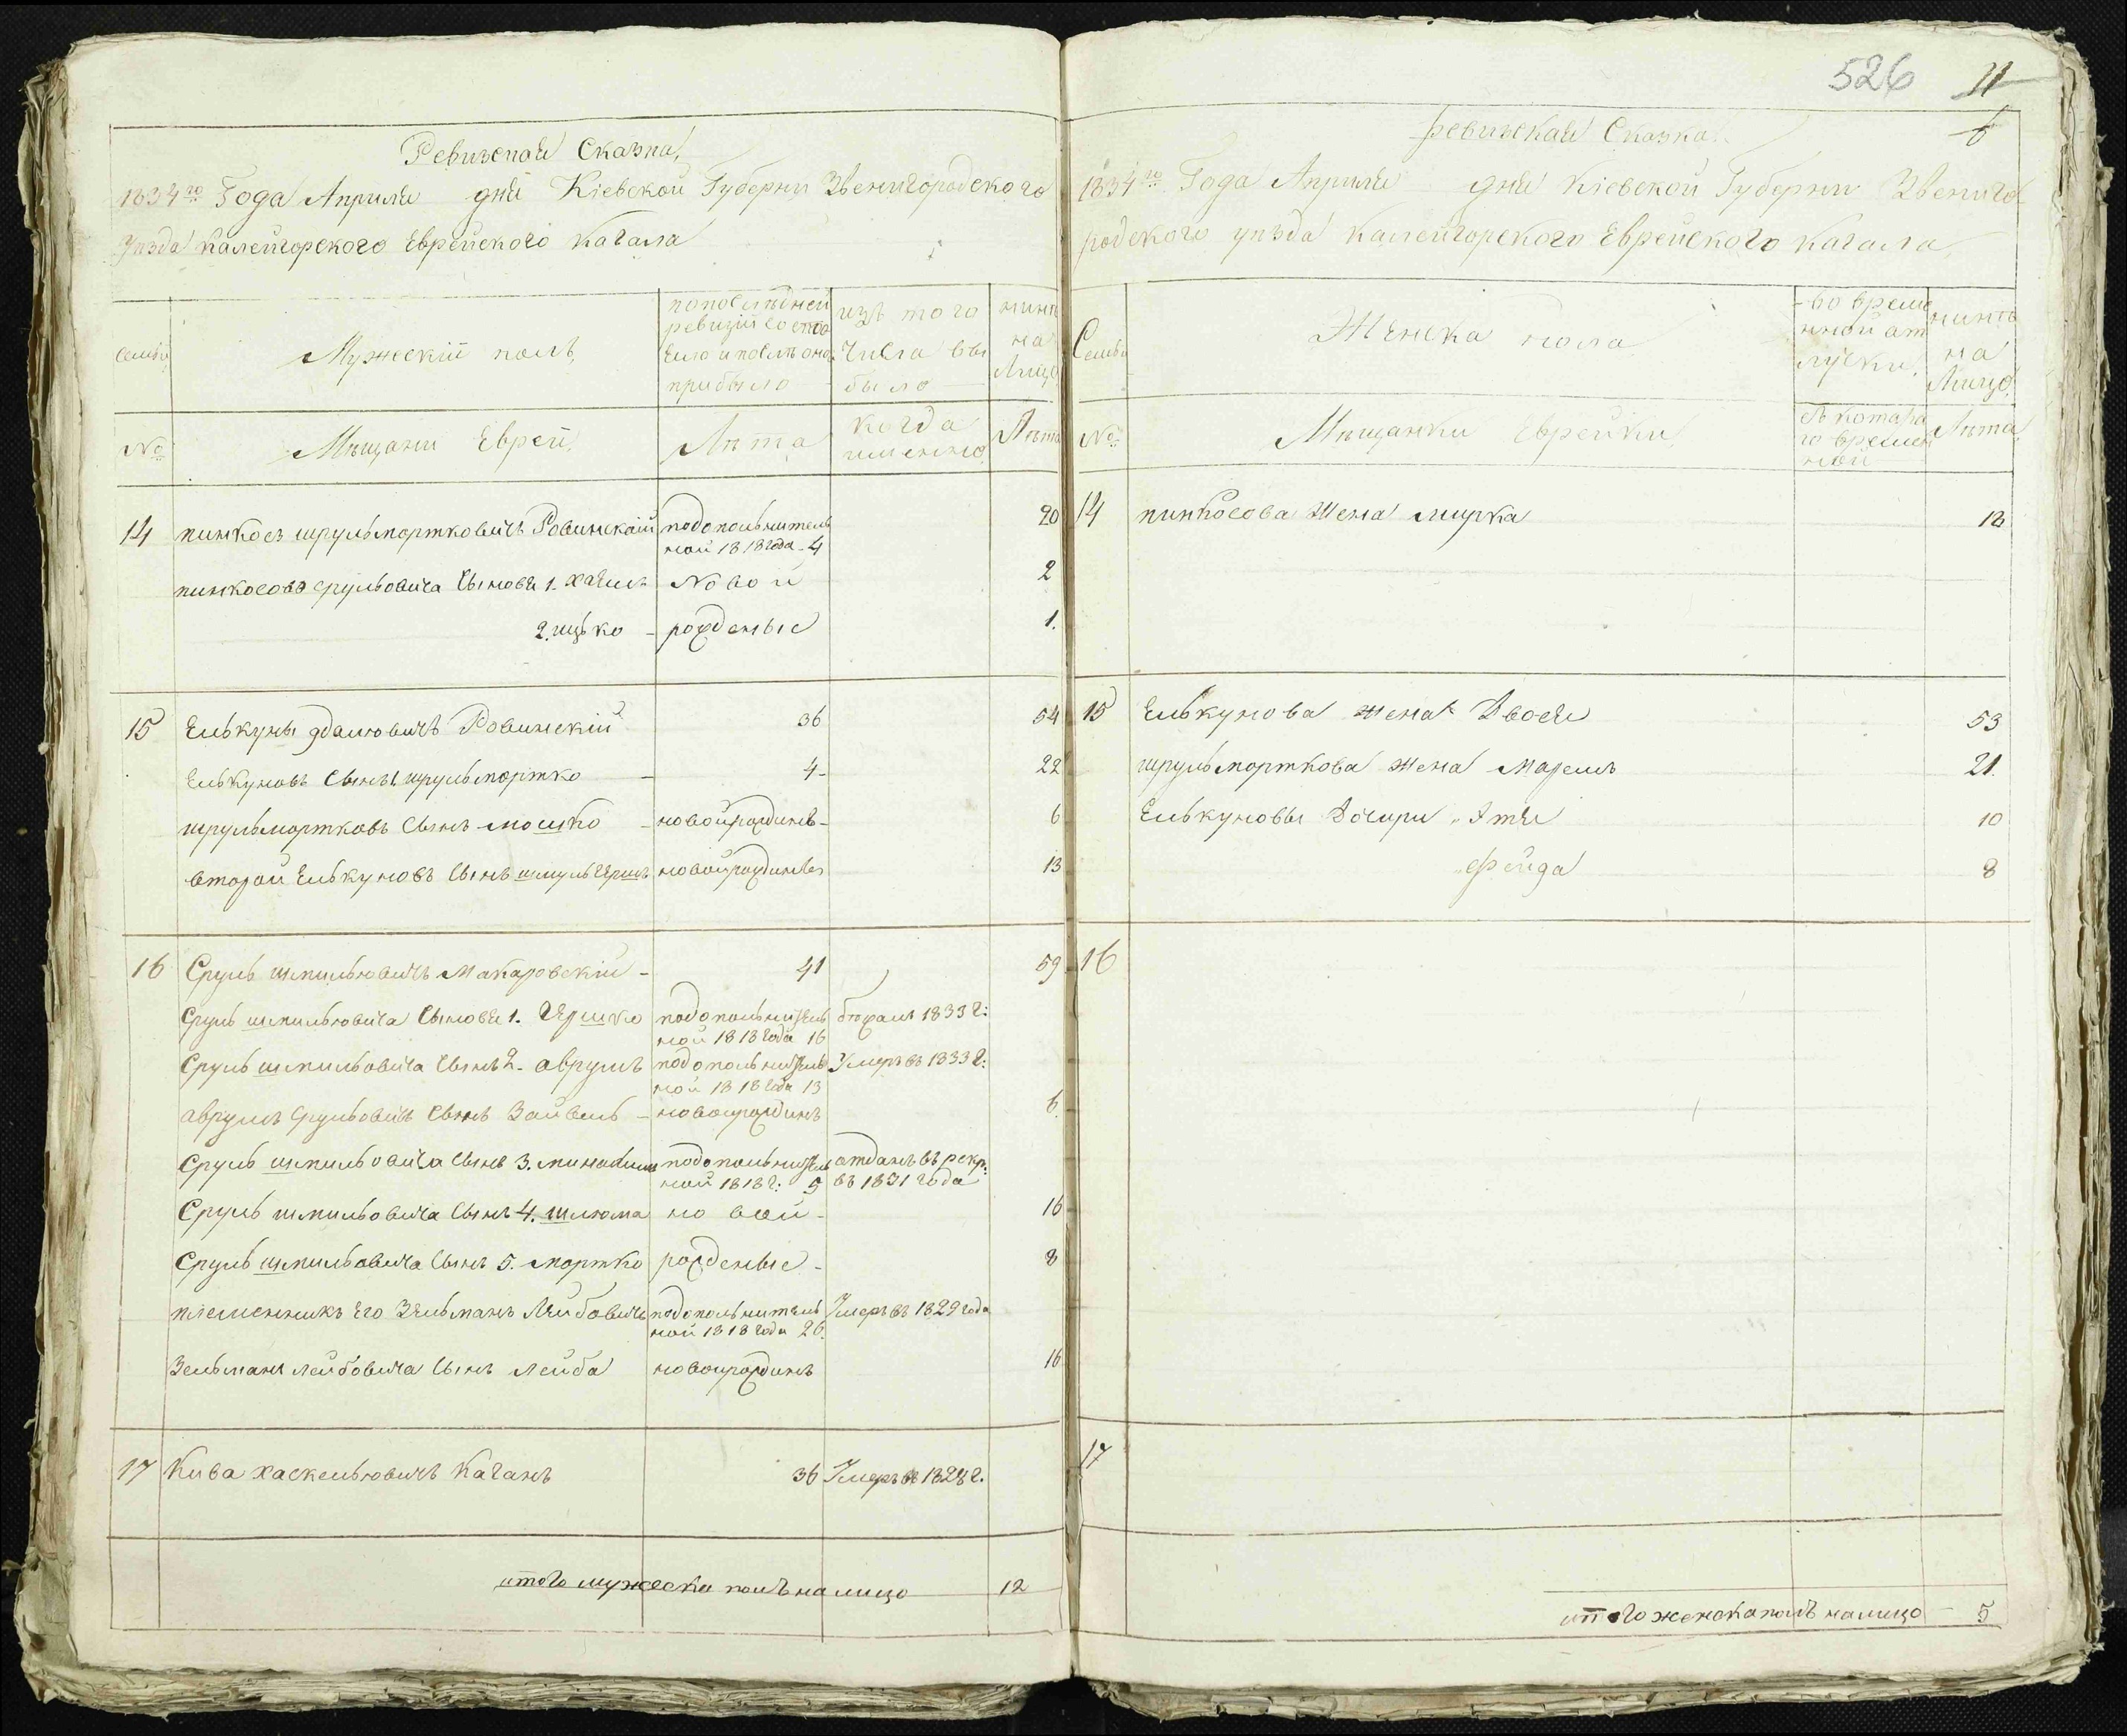 Ревизская Сказка,
1834го Года Апреля дня Кіевской Губерни Звенигородского
уѣзда Калейгорского Еврейского Кагала
семьи
Мужескій полъ,
попослѣдней
ревизіи состоя
ило и послѣ она
прибыло
изъ того
числа вы
было
нинѣ
на
Лицо
№
Мѣщани Еврей,
Лѣта
когда
именно
Лѣта
14 пинкосъ шрульмортковичъ Ровинскій подополнитель 20
ной 1818 года - 4
пинкосова срульовича Сыновя 1. хаимъ Новой 2
2. ицько - рожденые 1.
15 Елькуны Удалювичъ Ровинскій 36 54
Елькуновъ Сынъ 1 шрульмортко - 4 - 22
шрульмортковъ Сынъ мошко - новойрождинъ - 6
второй Елькуновъ Сынъ шмульгершъ новойрождинъ 13
16 Сруль шмильювичъ Макаровскій - 41 59
Сруль шмильювича Сыновя 1. Гершко подополнитель бежалъ 1833 г:
ной 1818 года 16
Сруль шмильовича Сынъ 2. аврумъ подополнитель Умеръ въ 1833 г:
ной 1818 года 13
аврумъ Срульовичъ Сынъ Зайвель - новойрождинъ 6.
Сруль шмильовича Сынъ 3. минахимъ подополнитель отданъ въ рекр:
ной 1818 г: 5 въ 1831 года
Сруль шмильовича Сынъ 4. шлюма но вой - 16
Сруль шмильовича Сынъ 5. мортко рожденые - 8
племенникъ Его Зельманъ Лейбовичъ подополнитель Умеръ въ 1829 года
ной 1818 года 26.
Зельманъ лейбовича Сынъ лейба новойрождинъ 16
17 Кива хаскельювичъ Каганъ 36 Умеръ въ 1828 г.
итого мужеска полъ налицо 12
526 11
6
Ревизская Сказка.
1834го Года Апреля дня Кіевской Губерни Звениго
родского уѣзда Калейгорского Еврейского Кагала
Семьи
Женска пола
во време
нной от
лучки.
нинѣ
на
Лицо.
№
Мѣщанки Еврейки
съ котора
го времен
ной
Лѣта,
14 пинкосова Жена мирка 18
15 Елькунова жена Двося 53
шрульморткова жена маремъ 21.
Елькуновы Дочири Этя 10
Фейда 8
16
17
итого женска полъ налицо - 5